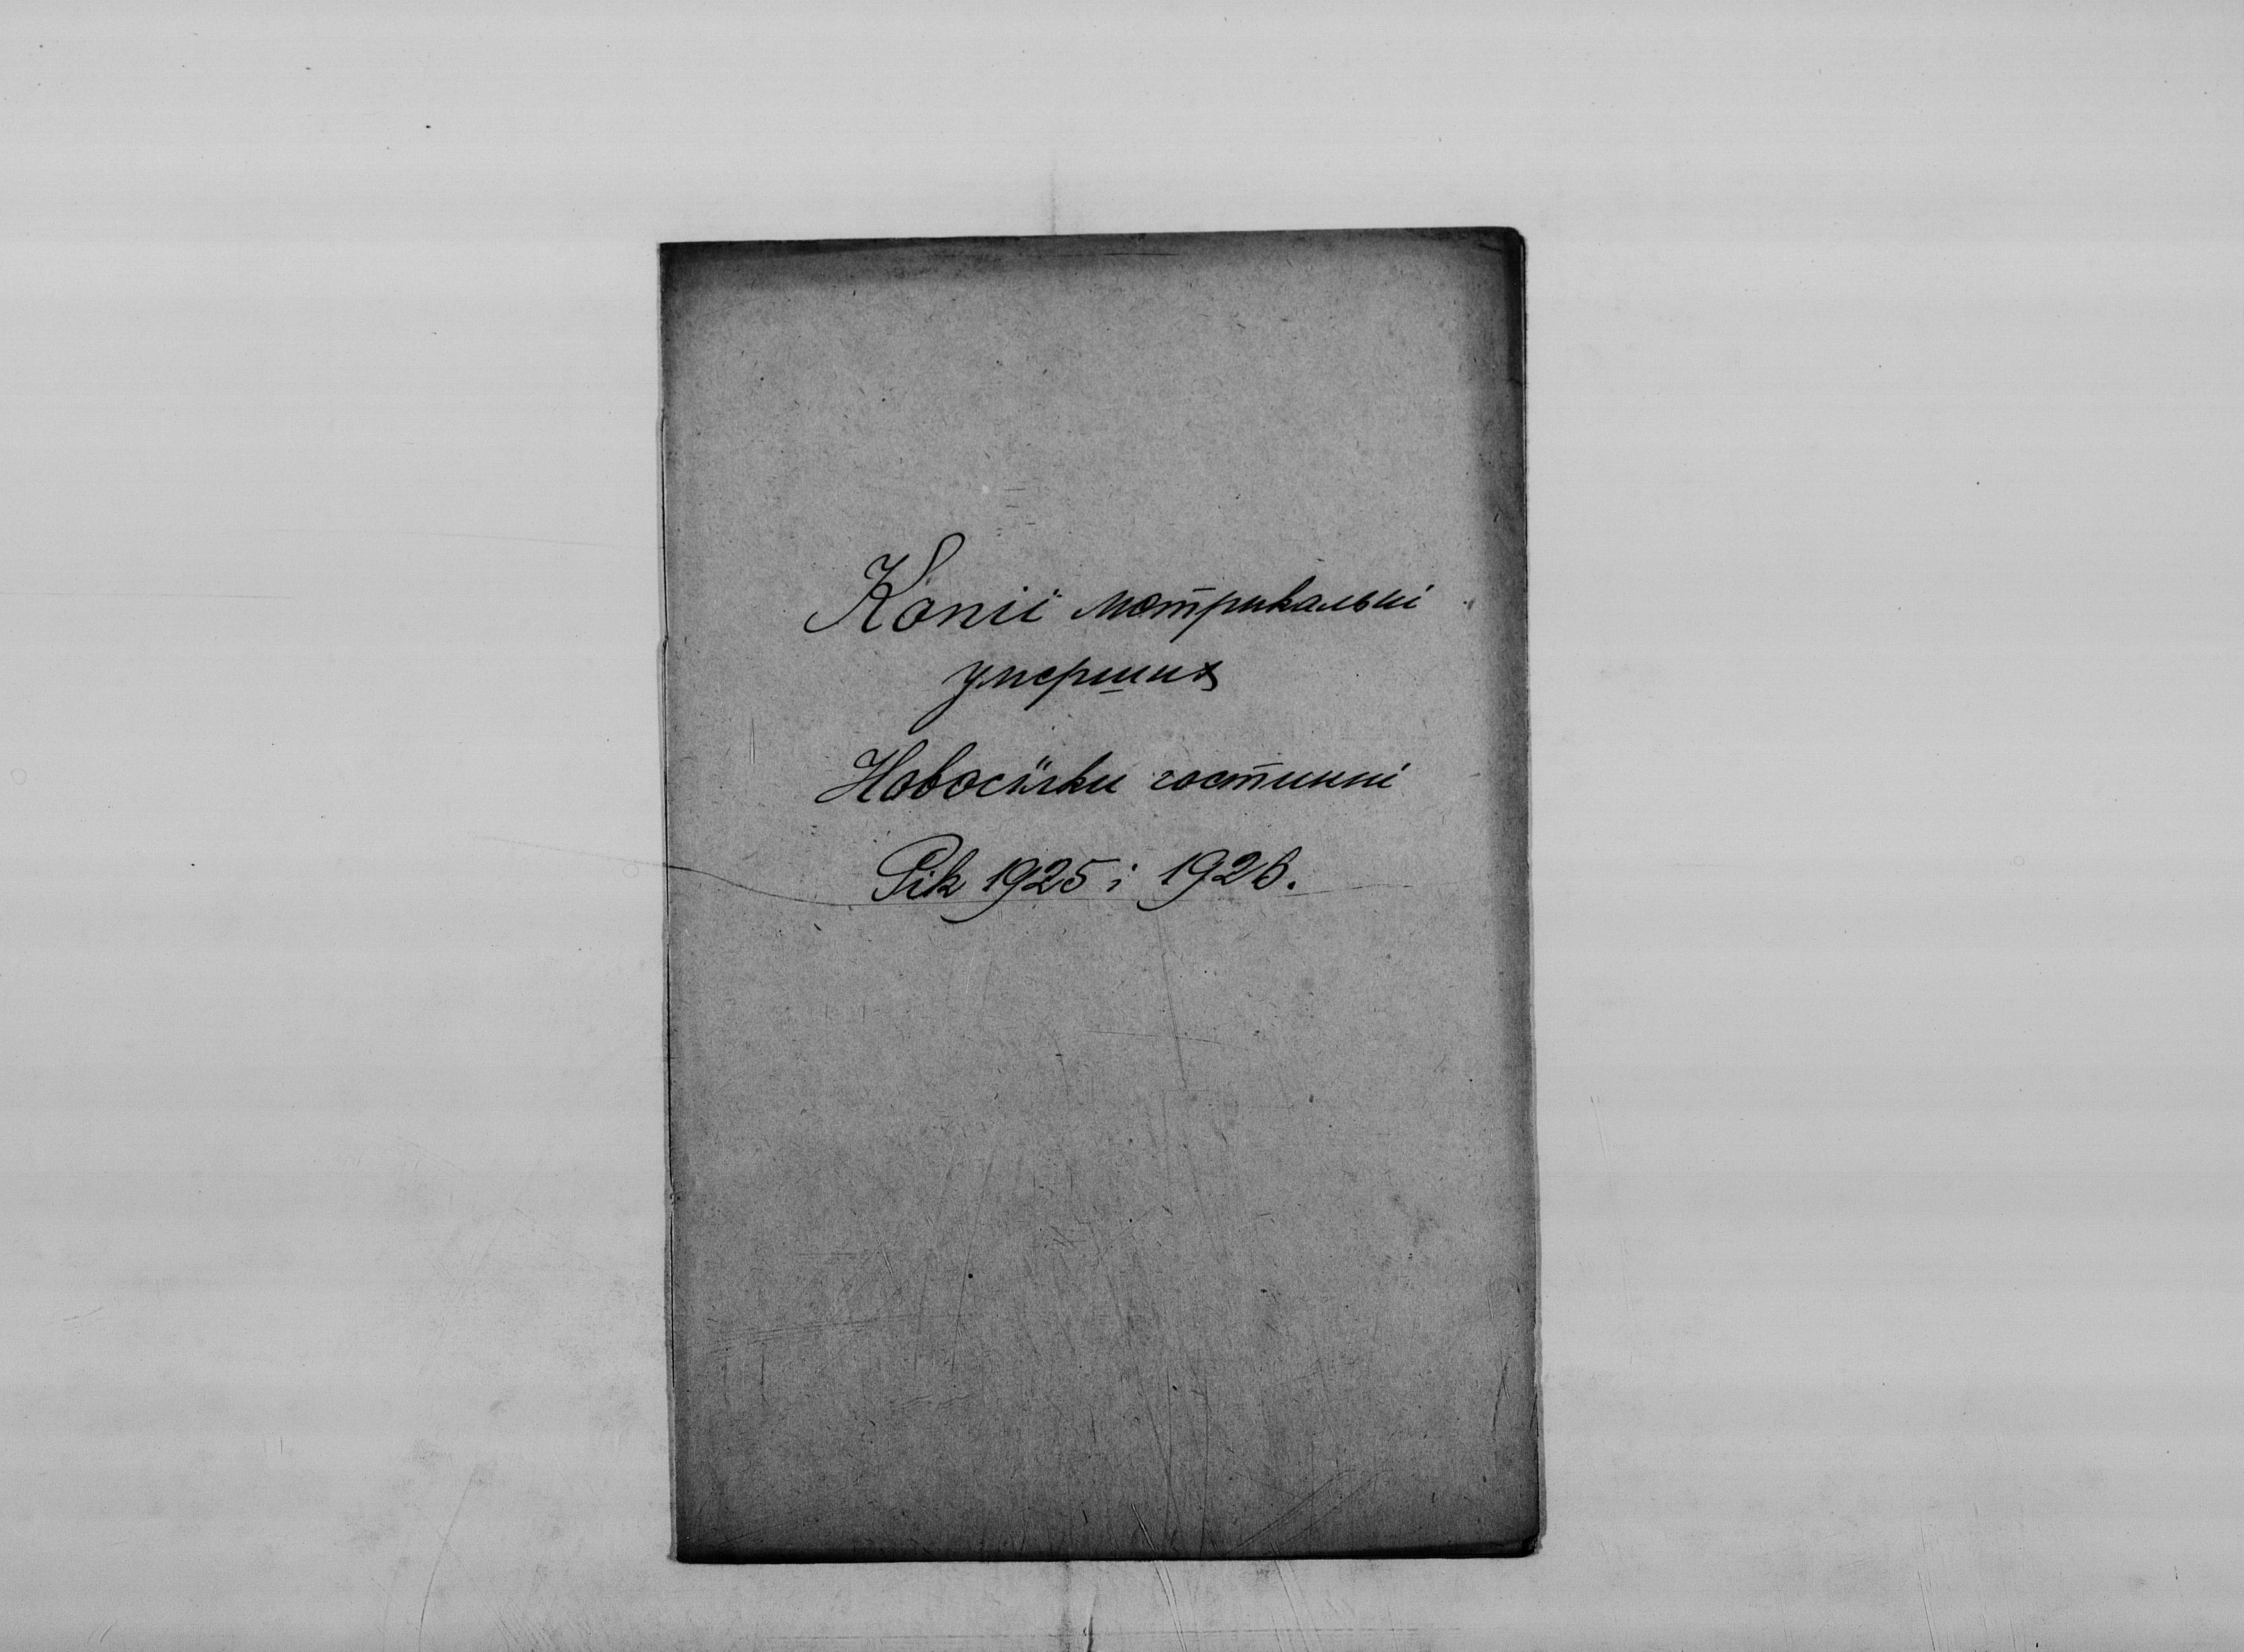 Копії метрикальні
умерших
Новосїлки гостинні
Рік 1925 і 1926.